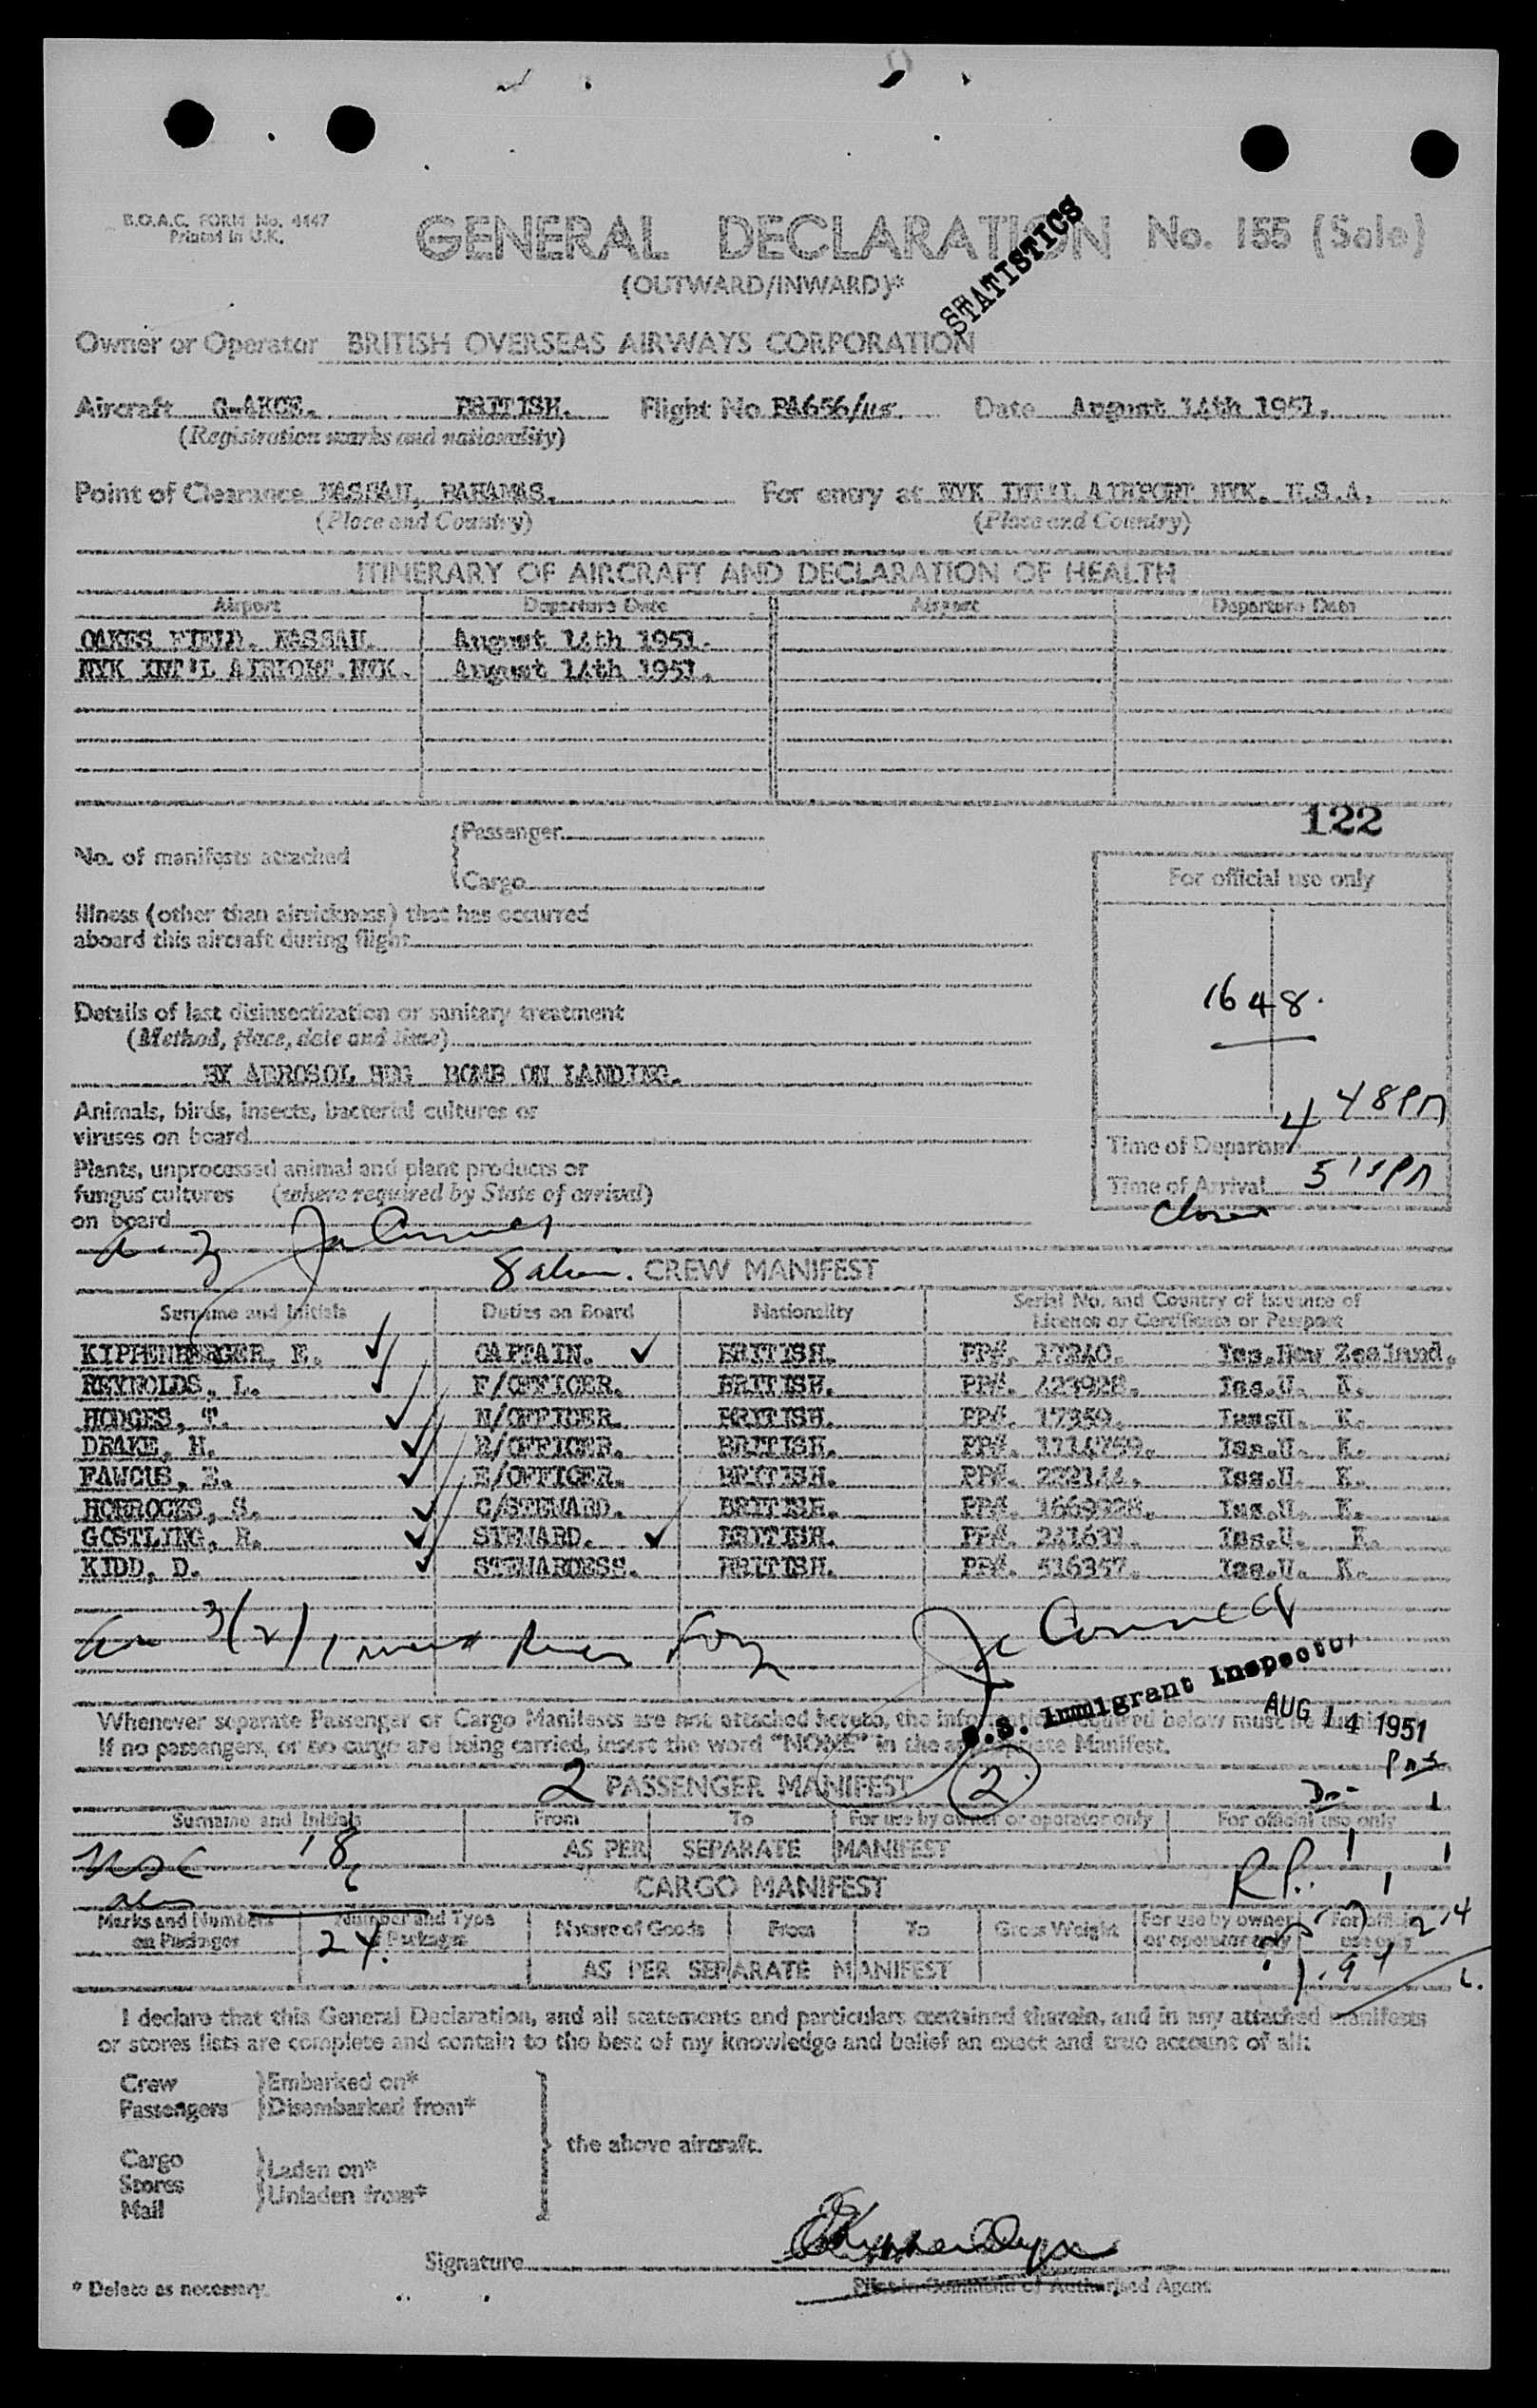 B.O.A.C. FORM No. 4447
Printed in U.K.
GENERAL DECLARATION No. 155 (Sale)
STATISTICS
(OUTWARD/INWARD)*
Owner or Operator BRITISH OVERSEAS AIRWAYS CORPORATION
Aircraft BRITISH. Flight No BA656/ Date August 14th 1951.
(Registration marks and nationality)
Point of Clearance NASSAU, BAHAMAS. For entry at NYK INT'L AIRPORT NYK. U.S.A.
(Place and Country) (Place and Country)
ITINERARY OF AIRCRAFT AND DECLARATION OF HEALTH
Airport Departure Date Airport Departure Date
OAKES FIELD. NASSAU. August 14th 1951.
NYK INT'L AIRPORT.NYK. August 14th 1951.
122
No. of manifests attached {Passenger
{Cargo
For official use only
Illness (other than airsickness) that has occurred
aboard this aircraft during flight
1648.
Details of last disinsectization or sanitary treatment
(Method, place, date and time)
BY AEROSOL BUG BOMB ON LANDING.
Animals, birds, insects, bacterial cultures or
viruses on board
4 48 PM
Time of Departure
Plants, unprocessed animal and plant products or
fungus cultures (where required by State of arrival)
on board
Time of Arrival 5 15 PM
8 CREW MANIFEST
Surname and Initials Duties on Board Nationality Serial No. and Country of Issuance of
Licence or Certificate or Passport
KIPPENBERGER, E. CAPTAIN. BRITISH. PP#. 17240. Iss.New Zealand.
REYNOLDS, L. F/OFFICER. BRITISH. PP#. 423928. Iss.U. K.
HODGES, T. N/OFFICER. BRITISH. PP#. 17359. Iss.U. K.
DRAKE, H. R/OFFICER. BRITISH. PP#. 1114759. Iss.U. K.
FAWCUS, E/OFFICER. BRITISH. PP#. Iss.U. K.
HORROCKS, S. C/STEWARD. BRITISH. PP#. 1669328. Iss.U. K.
GOSTLING, R. STEWARD. BRITISH. PP#. 241631. Iss.U. K.
KIDD, D. STEWARDESS. BRITISH. PP#. 516357. Iss.U. K.
U.S. Immigrant Inspector
AUG 14 1951
Whenever separate Passenger or Cargo Manifests are not attached hereto, the information required below must be
If no passengers, or no cargo are being carried, insert the word "NONE" in the appropriate Manifest.
2 PASSENGER MANIFEST 2
Surname and Initials From To For use by owner or operator only For official use only
AS PER SEPARATE MANIFEST
USC 18
6
CARGO MANIFEST
Marks and Numbers on Packages Number and Type of Packages Nature of Goods From To Gross Weight For use by owner or operator only For official use only
24.
AS PER SEPARATE MANIFEST
I declare that this General Declaration, and all statements and particulars contained therein, and in any attached manifests
or stores lists are complete and contain to the best of my knowledge and belief an exact and true account of all:
Crew }Embarked on*
Passengers }Disembarked from*
the above aircraft.
Cargo
Stores }Laden on*
Mail }Unladen from*
Signature
Pilot in Command or Authorised Agent
* Delete as necessary.